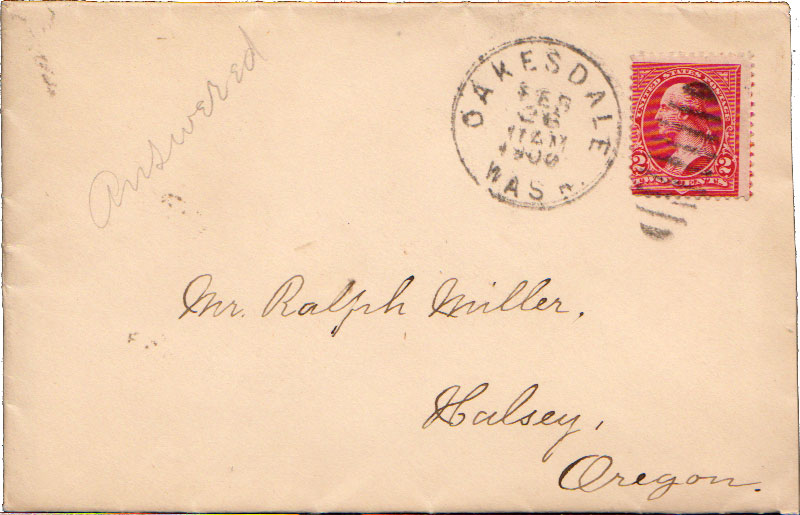 Answered
OAKESDALE
FEB
26
11 AM
1900
WASH.
UNITED STATES POSTAGE
2 2
TWO CENTS
Mr. Ralph Miller,
Halsey,
Oregon.